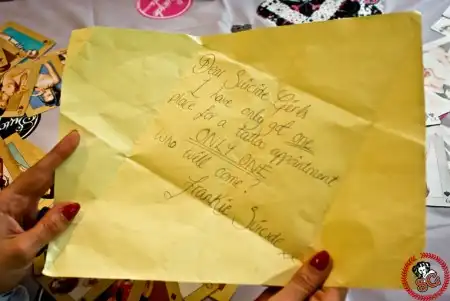 Dear Suicide Girls
I have only got one
place for a tattoo appointment
ONLY ONE
who will come?
Frankie Suicide x
SG